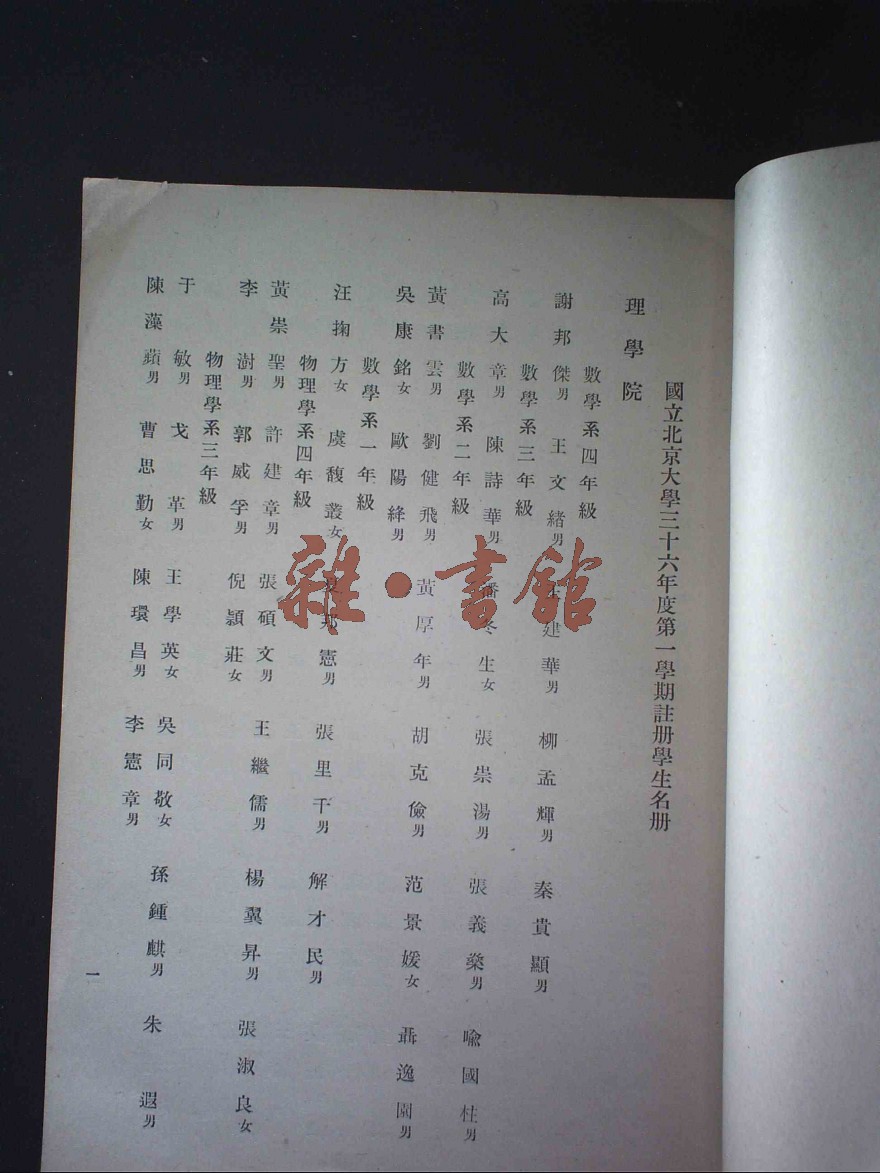 國立北京大學三十六年度第一學期註册學生名册
理學院
數學系四年級
謝邦傑男 王文緒男 建華男 柳孟輝男 秦貴顯男
數學系三年級
高大章男 陳詩華男 潘冬生女 張崇湯男 張義燊男 喩國柱男
數學系二年級
黃書雲男 劉健飛男 黃厚年男 胡克儉男 范景媛女 聶逸園男
吳康銘女 歐陽絳男
數學系一年級
汪掬方女 虞馥叢女 夏邦憲男 張里千男 解才民男
物理學系四年級
黃崇聖男 許建章男 張碩文男 王繼儒男 楊翼昇男 張淑良女
李澍男 郭威孚男 倪顥莊女
物理學系三年級
于敏男 戈革男 王學英女 吳同敬女 孫鍾麒男 朱遐男
陳藻蘋男 曹思勤女 陳環昌男 李憲章男
一
雜·書館